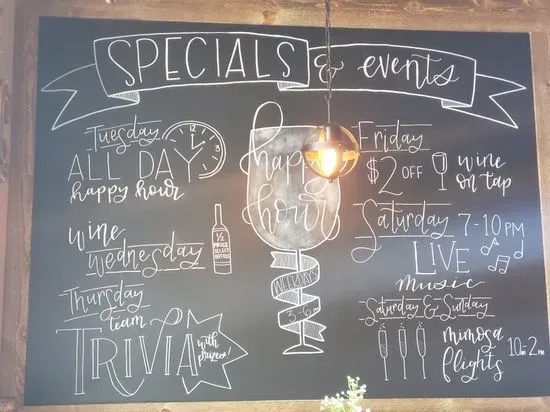 SPECIALS & events
Tuesday
ALL DAY
happy hour
12
3
wine
wednesday
1/2
PRICE
SELECT
BOTTLES
Thursday
team
TRIVIA
with
prizes!
happy
hour
WEEKDAYS
3-6pm
Friday
$2 OFF
wine
on tap
Saturday 7-10PM
LIVE
music
Saturday & Sunday
mimosa
flights
10am-2PM